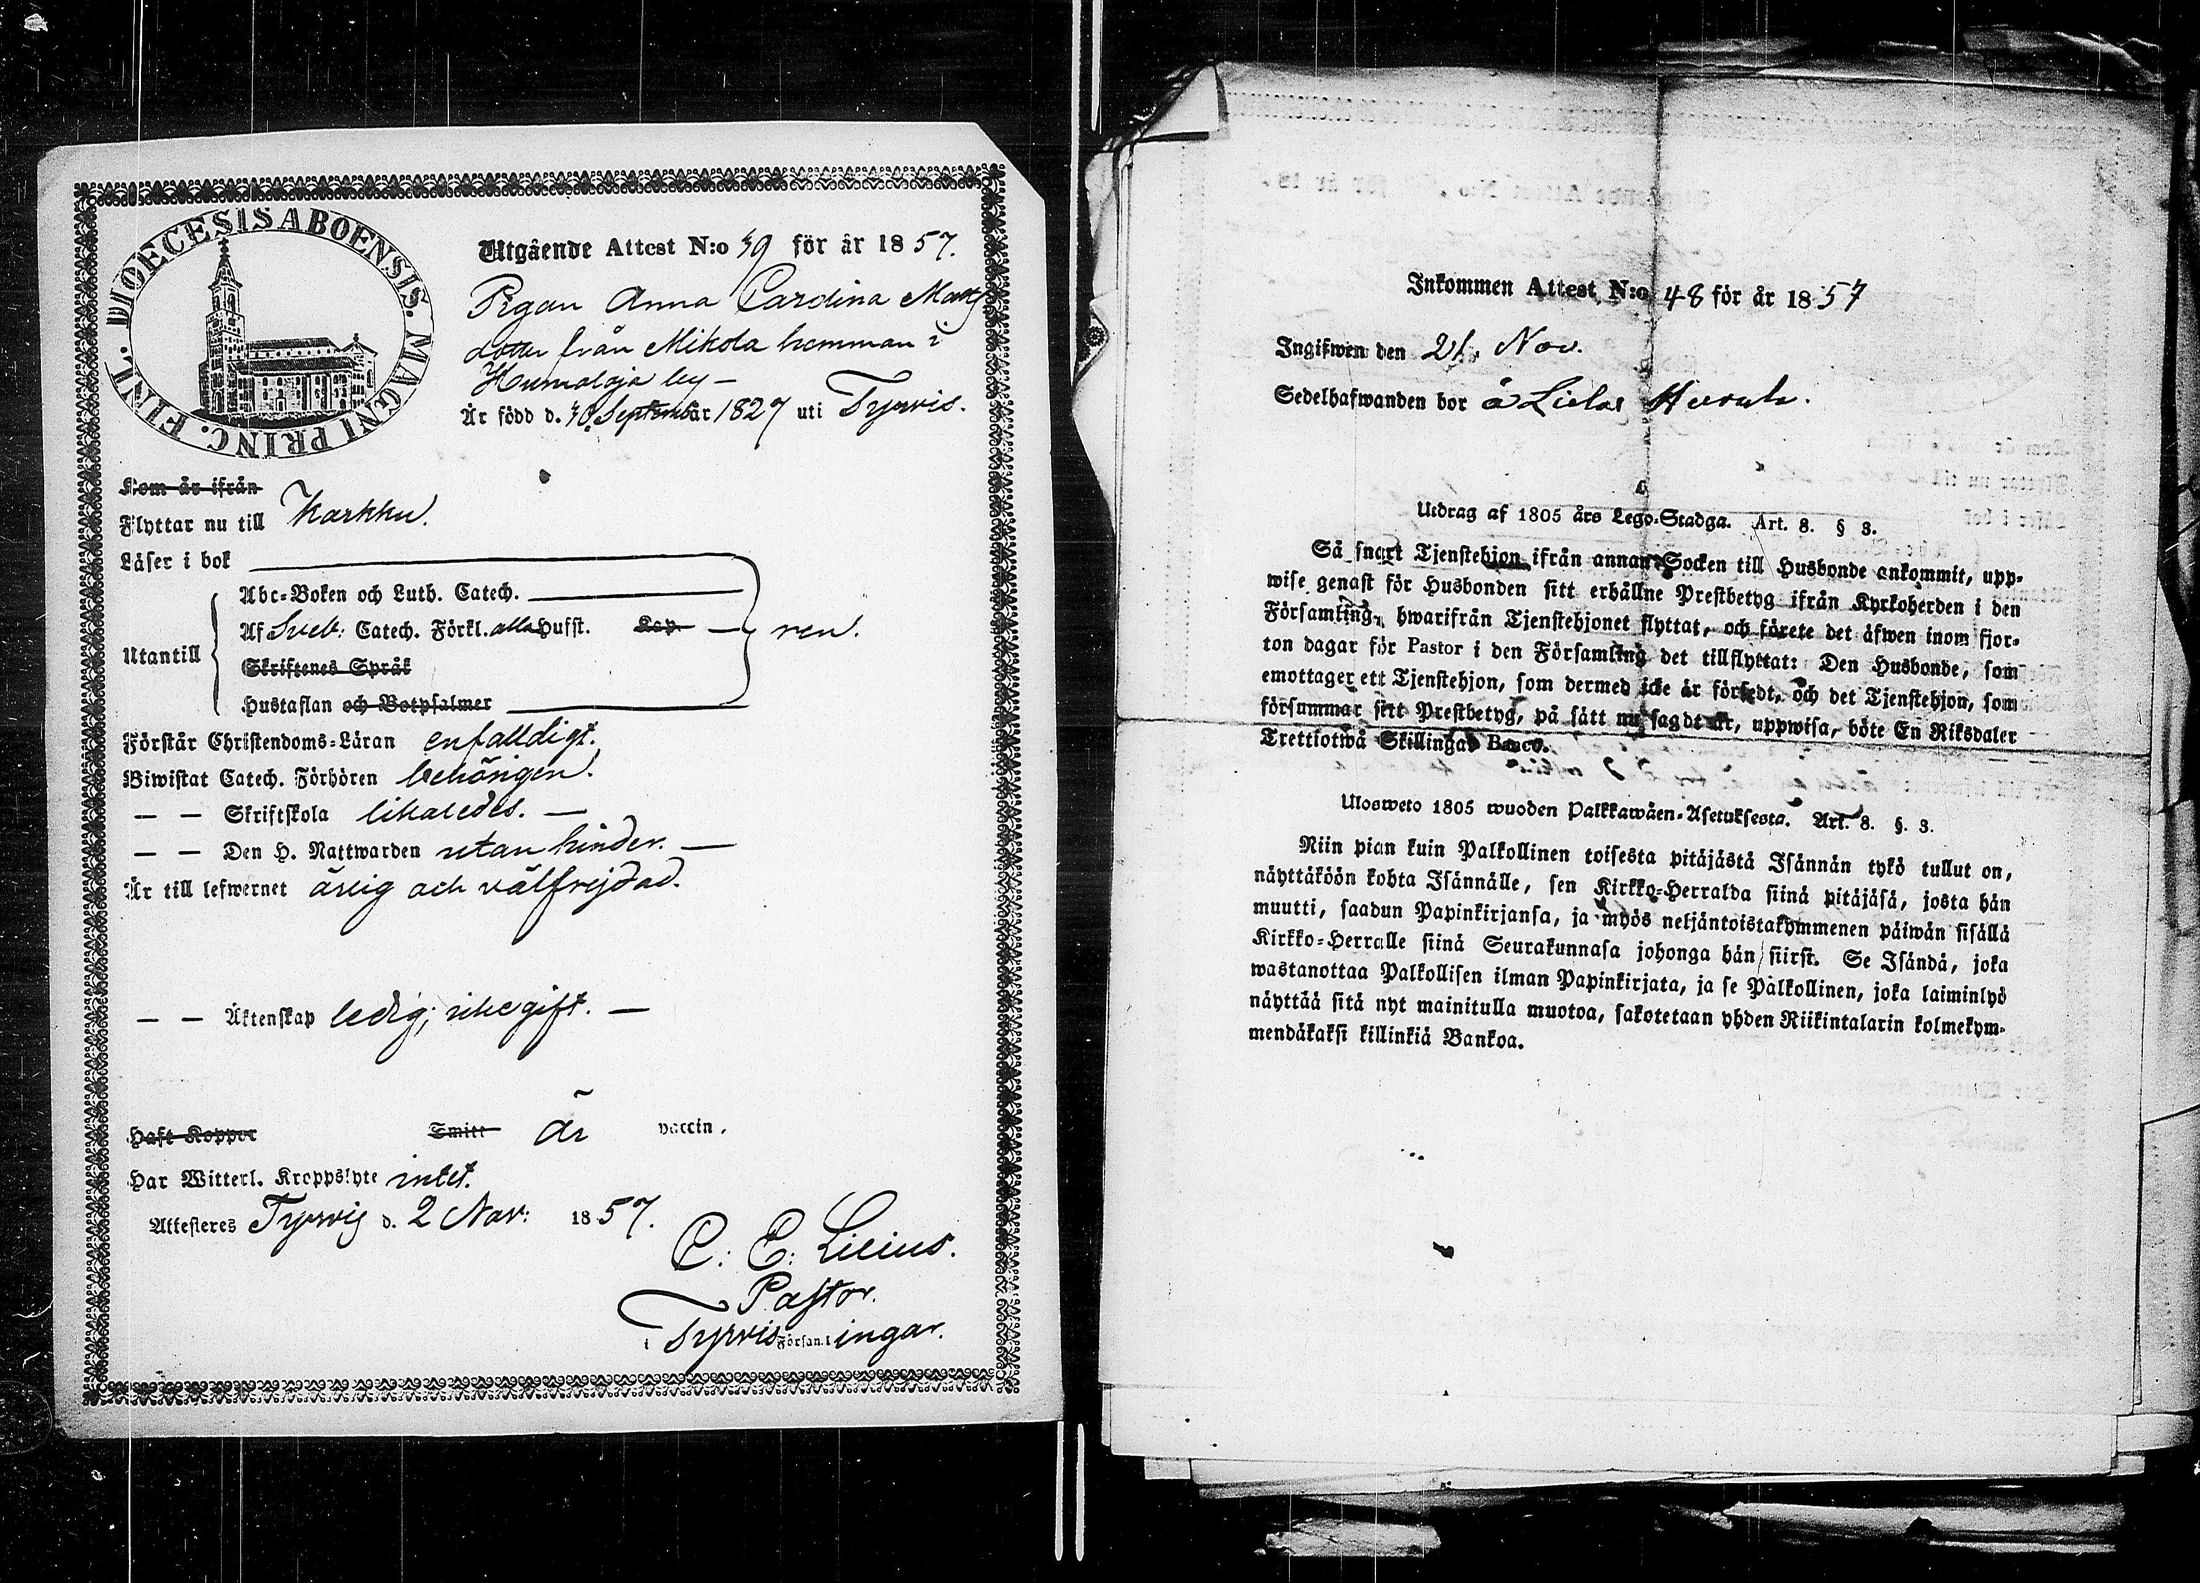 DIOECESIS ABOENSIS. MAGNI PRINC. FINL.
Utgående Attest N:o 39 för år 1857.
Pigan Anna Carolina Matts
dotter från Mikola hemman i
Humaloja by —
Är född d. 30 September 1827 uti Tyrvis.
Kom år ifrån
Flyttar nu till Karkku.
Läser i bok
Abc-Boken och Luth. Catech.
Utantill
Af Sveb: Catech. Förkl. alla Hufst. Kap. — ren.
Skriftenes Språk
Hustaflan och Botpsalmer
Förstår Christendoms-Läran enfalldigt.
Biwistat Catech. Förhören behörigen.
— — Skriftskola likaledes. —
— — Den H. Nattwarden utan hinder. —
Är till lefwernet ärlig och välfrejdad.
— — Äktenskap ledig; icke gift. —
Haft Koppor Smitt är vaccin.
Har Witterl. Kroppslyte intet.
Attesteras Tyrvis d. 2 Nov: 1857.
C: E: Lilius.
Pastor.
i Tyrvis Församl ingar.
Inkommen Attest N:o 48 för år 1857
Ingifwen den 21. Nov.
Sedelhafwanden bor å
Utdrag af 1805 års Lego-Stadga. Art. 8. § 3.
Så snart Tjenstehjon ifrån annan Socken till Husbonde ankommit, upp-
wise genast för Husbonden sitt erhållne Prestbetyg ifrån Kyrkoherden i den
Församling, hwarifrån Tjenstehjonet flyttat, och förete det äfwen inom fjor-
ton dagar för Pastor i den Församling det tillflyttat: Den Husbonde, som
emottager ett Tjenstehjon, som dermed icke är försedt, och det Tjenstehjon, som
försummar sitt Prestbetyg, på sätt nu sagdt är, uppwisa, böte En Riksdaler
Trettiotwå Skillingar Banco.
Ulosweto 1805 wuoden Palkkawäen-Asetuksesta. Art. 8. §. 3.
Niin pian kuin Palkollinen toisesta pitäjästä Isännän tykö tullut on,
näyttäköön kohta Isännälle, sen Kirkko-Herralda siinä pitäjäsä, josta hän
muutti, saadun Papinkirjansa, ja myös neljäntoistakymmenen päiwän sisällä
Kirkko-Herralle siinä Seurakunnasa johonga hän siirst. Se Isändä, joka
wastanottaa Palkollisen ilman Papinkirjata, ja se Palkollinen, joka laiminlyö
näyttää sitä nyt mainitulla muotoa, sakotetaan yhden Riikintalarin kolmekym-
mendäkaksi killinkiä Bankoa.